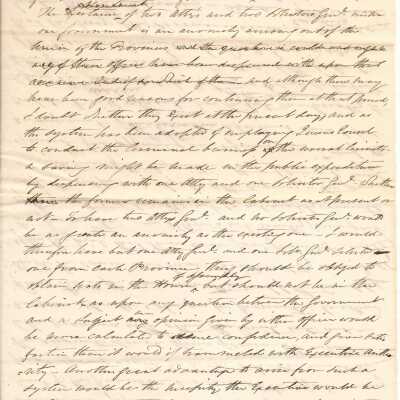 The
of two Atty's and two Solicitors Genl. under
one Government is an anomaly arising out of the
Union of the Provinces and the
of these Officers have been dispensed with upon that
and although there may
have been good reasons for continuing them at that period,
I doubt whether they exist at the present day, and as
the system has been adopted of employing Queens Counsel
to conduct the Criminal business on the several Circuits
a saving might be made in the public expenditure
by dispensing with one Atty and one Solicitor Genl. Whether
the former remains in the Cabinet as at present or
not. To have two Attys Genl. and no Solicitor Genl. would
be as great an anomaly as the existing one. I would
therefore have but one Atty Genl. and one Solr. Genl.
one from each Province, they should be obliged to
obtain seats in the House of Assembly, but should not be in the
Cabinet, as upon any question between the Government
and a subject any opinion given by either officer would
be more calculated to confidence, and give
faction than it would if trammeled with Executive Autho
rity. Another great advantage to arise from such a
system would be the the Executive would be